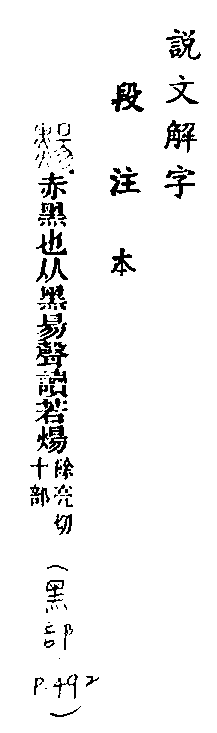 說文解字
段注本
赤黑也从黑昜聲讀若煬餘亮切十部
（黑部
P.492）